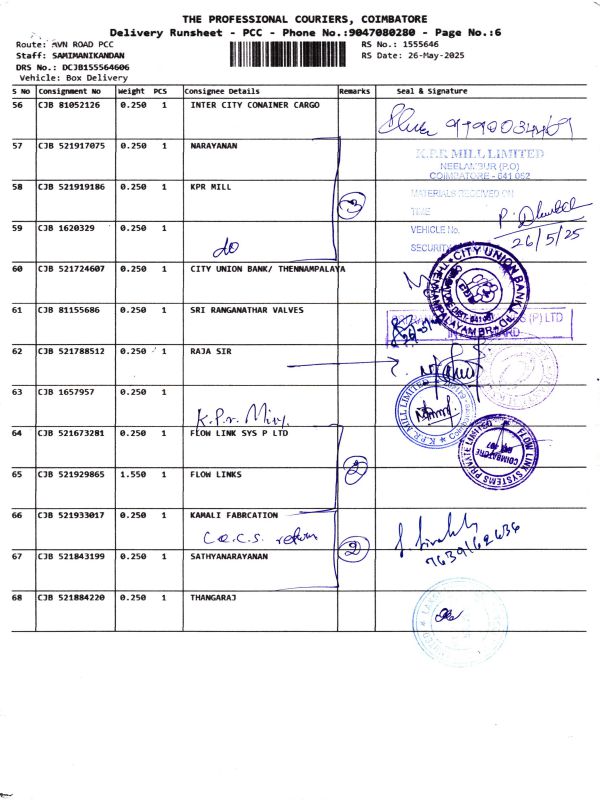 THE PROFESSIONAL COURIERS, COIMBATORE
Delivery Runsheet - PCC - Phone No.:9047080280 - Page No.:6
Route: AVN ROAD PCC
RS No.: 1555646
Staff: SAMIMANIKANDAN
RS Date: 26-May-2025
DRS No.: DCJB155564606
Vehicle: Box Delivery
S No Consignment No Weight PCS Consignee Details Remarks Seal & Signature
56 CJB 81052126 0.250 1 INTER CITY CONAINER CARGO
57 CJB 521917075 0.250 1 NARAYANAN
K.P.R. MILL LIMITED
NEELAMBUR (P.O)
COIMBATORE - 641 062
58 CJB 521919186 0.250 1 KPR MILL
MATERIALS RECEIVED ON
3
TIME
59 CJB 1620329 0.250 1
VEHICLE No.
26/5/25
do
SECURITY
60 CJB 521724607 0.250 1 CITY UNION BANK/ THENNAMPALAYA
CITY UNION BANK LTD
61 CJB 81155686 0.250 1 SRI RANGANATHAR VALVES
(P) LTD
62 CJB 521788512 0.250 1 RAJA SIR
63 CJB 1657957 0.250 1
K.P.R. MILL LIMITED
K.P.r. Mill
64 CJB 521673281 0.250 1 FLOW LINK SYS P LTD
FLOW LINK SYSTEMS PRIVATE LIMITED
COIMBATORE
65 CJB 521929865 1.550 1 FLOW LINKS
2
66 CJB 521933017 0.250 1 KAMALI FABRCATION
2
7639162636
67 CJB 521843199 0.250 1 SATHYANARAYANAN
68 CJB 521884220 0.250 1 THANGARAJ